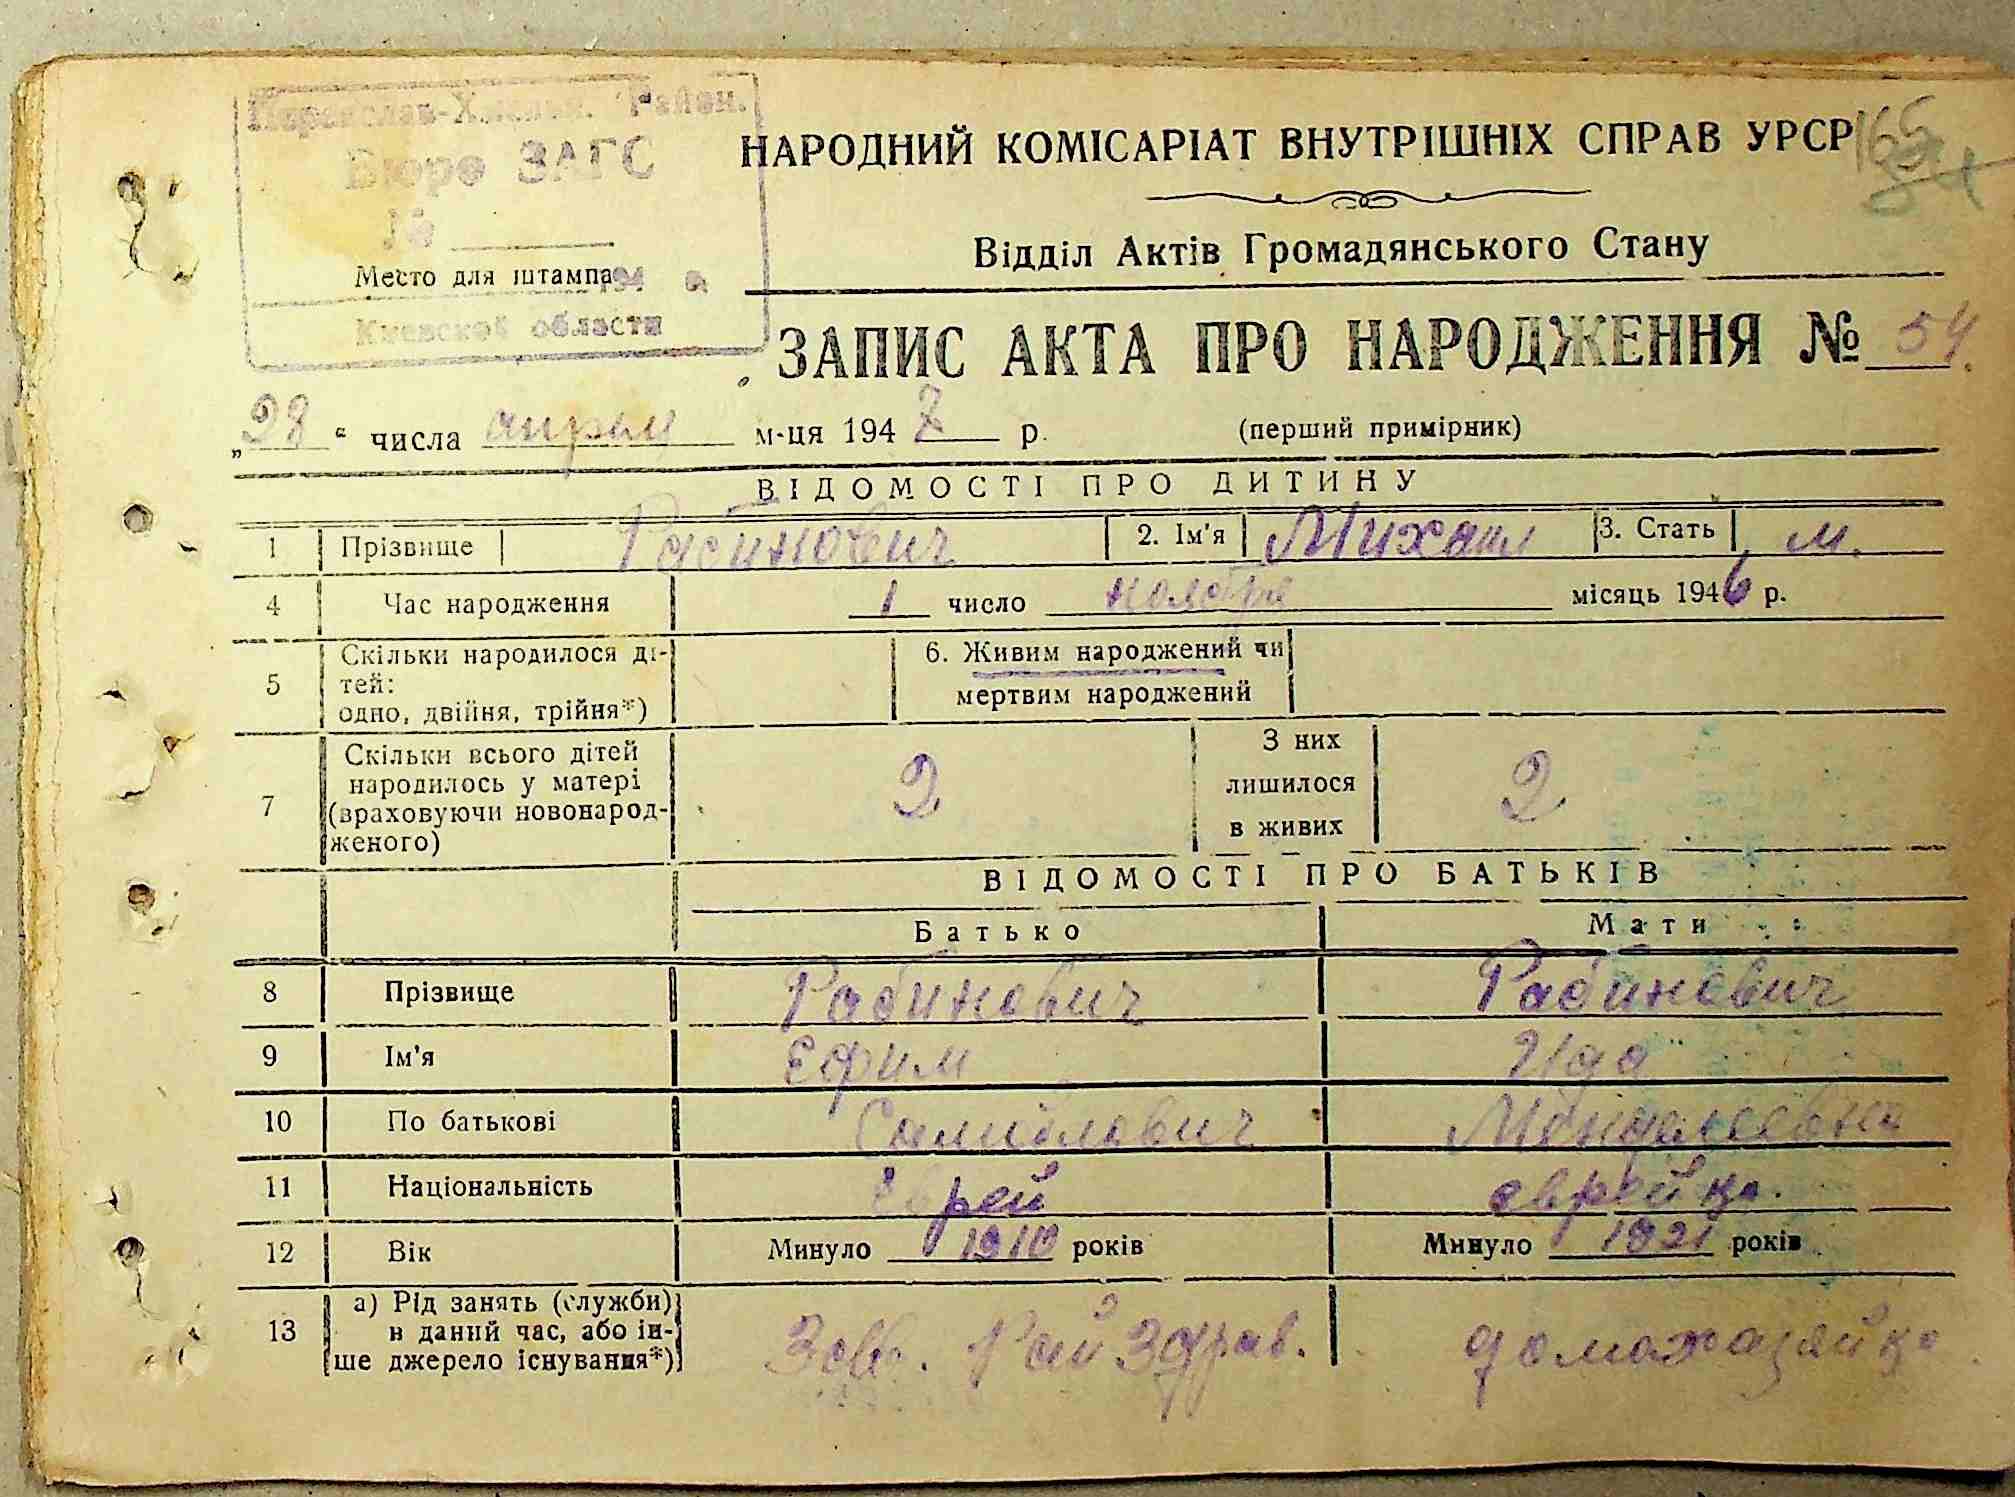 Переяслав-Хмельн. Район.
Бюро ЗАГС
№
Место для штампа 194 г.
Киевской области
НАРОДНИЙ КОМІСАРІАТ ВНУТРІШНІХ СПРАВ УРСР
Відділ Актів Громадянського Стану
ЗАПИС АКТА ПРО НАРОДЖЕННЯ № 54
„28“ числа апреля м-ця 1947 р. (перший примірник)
ВІДОМОСТІ ПРО ДИТИНУ
1 Прізвище Рабинович 2. Ім'я Михаил 3. Стать м.
4 Час народження 1 число ноября місяць 1946 р.
5 Скільки народилося ді-
тей:
одно, двійня, трійня*)
6. Живим народжений чи
мертвим народжений
7 Скільки всього дітей
народилось у матері
(враховуючи новонарод-
женого)
2
З них
лишилося
в живих
2
ВІДОМОСТІ ПРО БАТЬКІВ
Батько Мати
8 Прізвище Рабинович Рабинович
9 Ім'я Ефим Ида
10 По батькові Самойлович Менделеевна
11 Національність Еврей еврейка.
12 Вік Минуло 1910 років Минуло 1921 років
13 а) Рід занять (служби)
в даний час, або ін-
ше джерело існування*)
Зав. Райздрав. домохазяйка